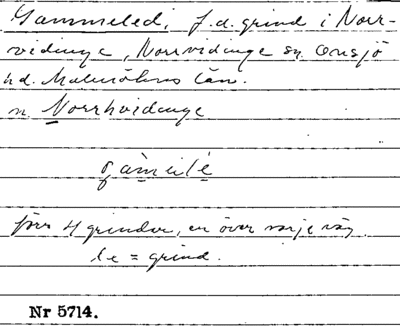 Gammeled, f.d. grind i Norr-
vidinge, Norrvidinge sn Onsjö
hd. Malmöhus län.
n Norrhvidinge
gàmɛlé
förr 4 grindar, en över varje väg.
le = grind.
Nr 5714.